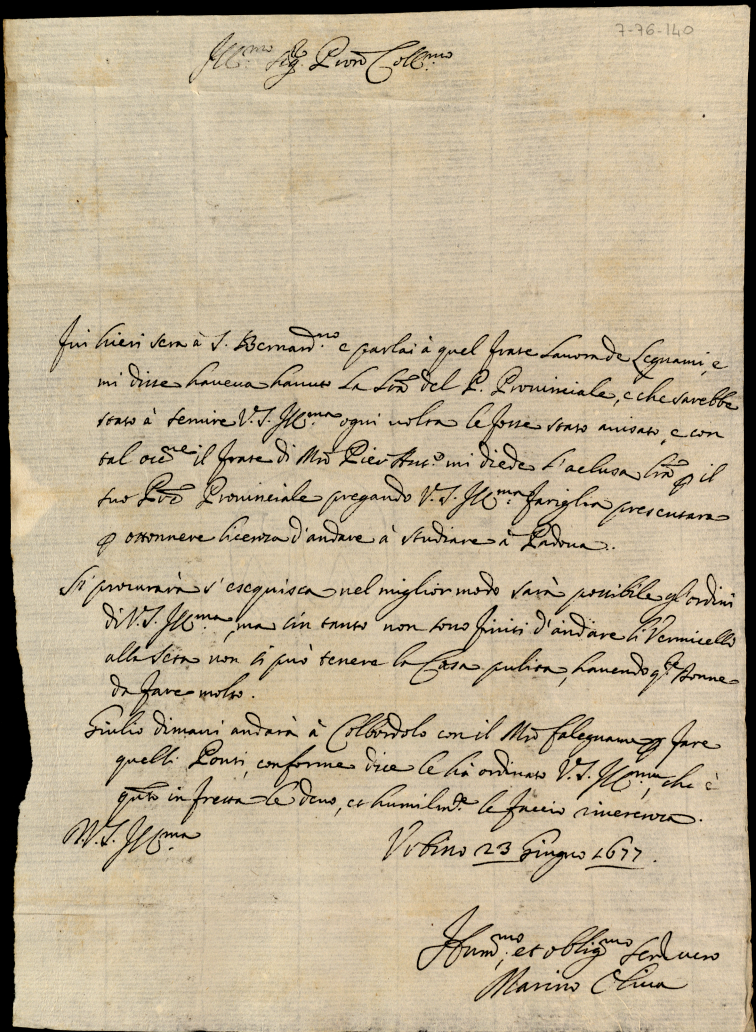 7-76-140
Ill.mo Sig.r Pron Coll.mo
Fui hieri sera à S. Bernard.no e parlai à quel frate lavora de Legnami, e
mi disse haveva havuto la l'ra del P. Provinciale, e che sarebbe
stato à servire V.S. Ill.ma ogni volta le fosse stato avisato, e con
tal occ.ne il frate di M.ro Pier Ant.o mi diede l'aclusa l'ra p il
suo P.re Provinciale pregando V.S. Ill.ma fargliela presentare
p ottenere licenza d'andare à studiare à Padova.
Si procurarà s'esequisca nel miglior modo sarà possibile gl'ordini
di V.S. Ill.ma, ma sin tanto non sono finiti d'andare li Vermicelli
alla Seta non si può tenere la Casa pulita, havendo q.te Donne
da fare molto.
Giulio dimani andarà à Colbordolo con il M.ro falegname p fare
quelli Ponti, conforme dice le hà ordinato V.S. Ill.ma, che è
q.nto in fretta le devo, et humilm.te le faccio riverenza.
D.V.S. Ill.ma
Urbino 23 Giugno 1677.
Hum.mo, et oblig.mo Ser.re vero
Marino Oliva